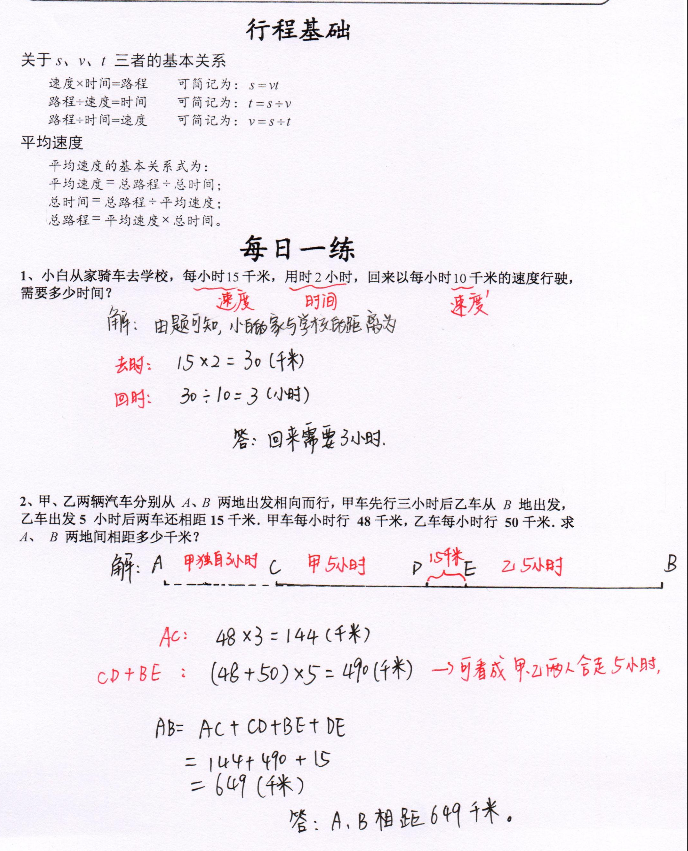 行程基础
关于 s、v、t 三者的基本关系
速度×时间=路程 可简记为：s = vt
路程÷速度=时间 可简记为：t = s ÷ v
路程÷时间=速度 可简记为：v = s ÷ t
平均速度
平均速度的基本关系式为：
平均速度＝总路程÷总时间；
总时间＝总路程÷平均速度；
总路程＝平均速度×总时间。
每日一练
1、小白从家骑车去学校，每小时15千米，用时2小时，回来以每小时10千米的速度行驶，
需要多少时间？
速度 时间 速度'
解：由题可知，小白的家与学校的距离为
去时：15×2=30(千米)
回时：30÷10=3(小时)
答：回来需要3小时.
2、甲、乙两辆汽车分别从 A、B 两地出发相向而行，甲车先行三小时后乙车从 B 地出发，
乙车出发 5 小时后两车还相距 15 千米．甲车每小时行 48 千米，乙车每小时行 50 千米．求
A、 B 两地间相距多少千米？
解：A 甲独自3小时 C 甲5小时 D 15千米 E 乙5小时 B
AC：48×3=144(千米)
CD+BE：(48+50)×5=490(千米) →可看成甲、乙两人合走5小时,
AB= AC+CD+BE+DE
=144+490+15
=649(千米)
答：A、B相距649千米。